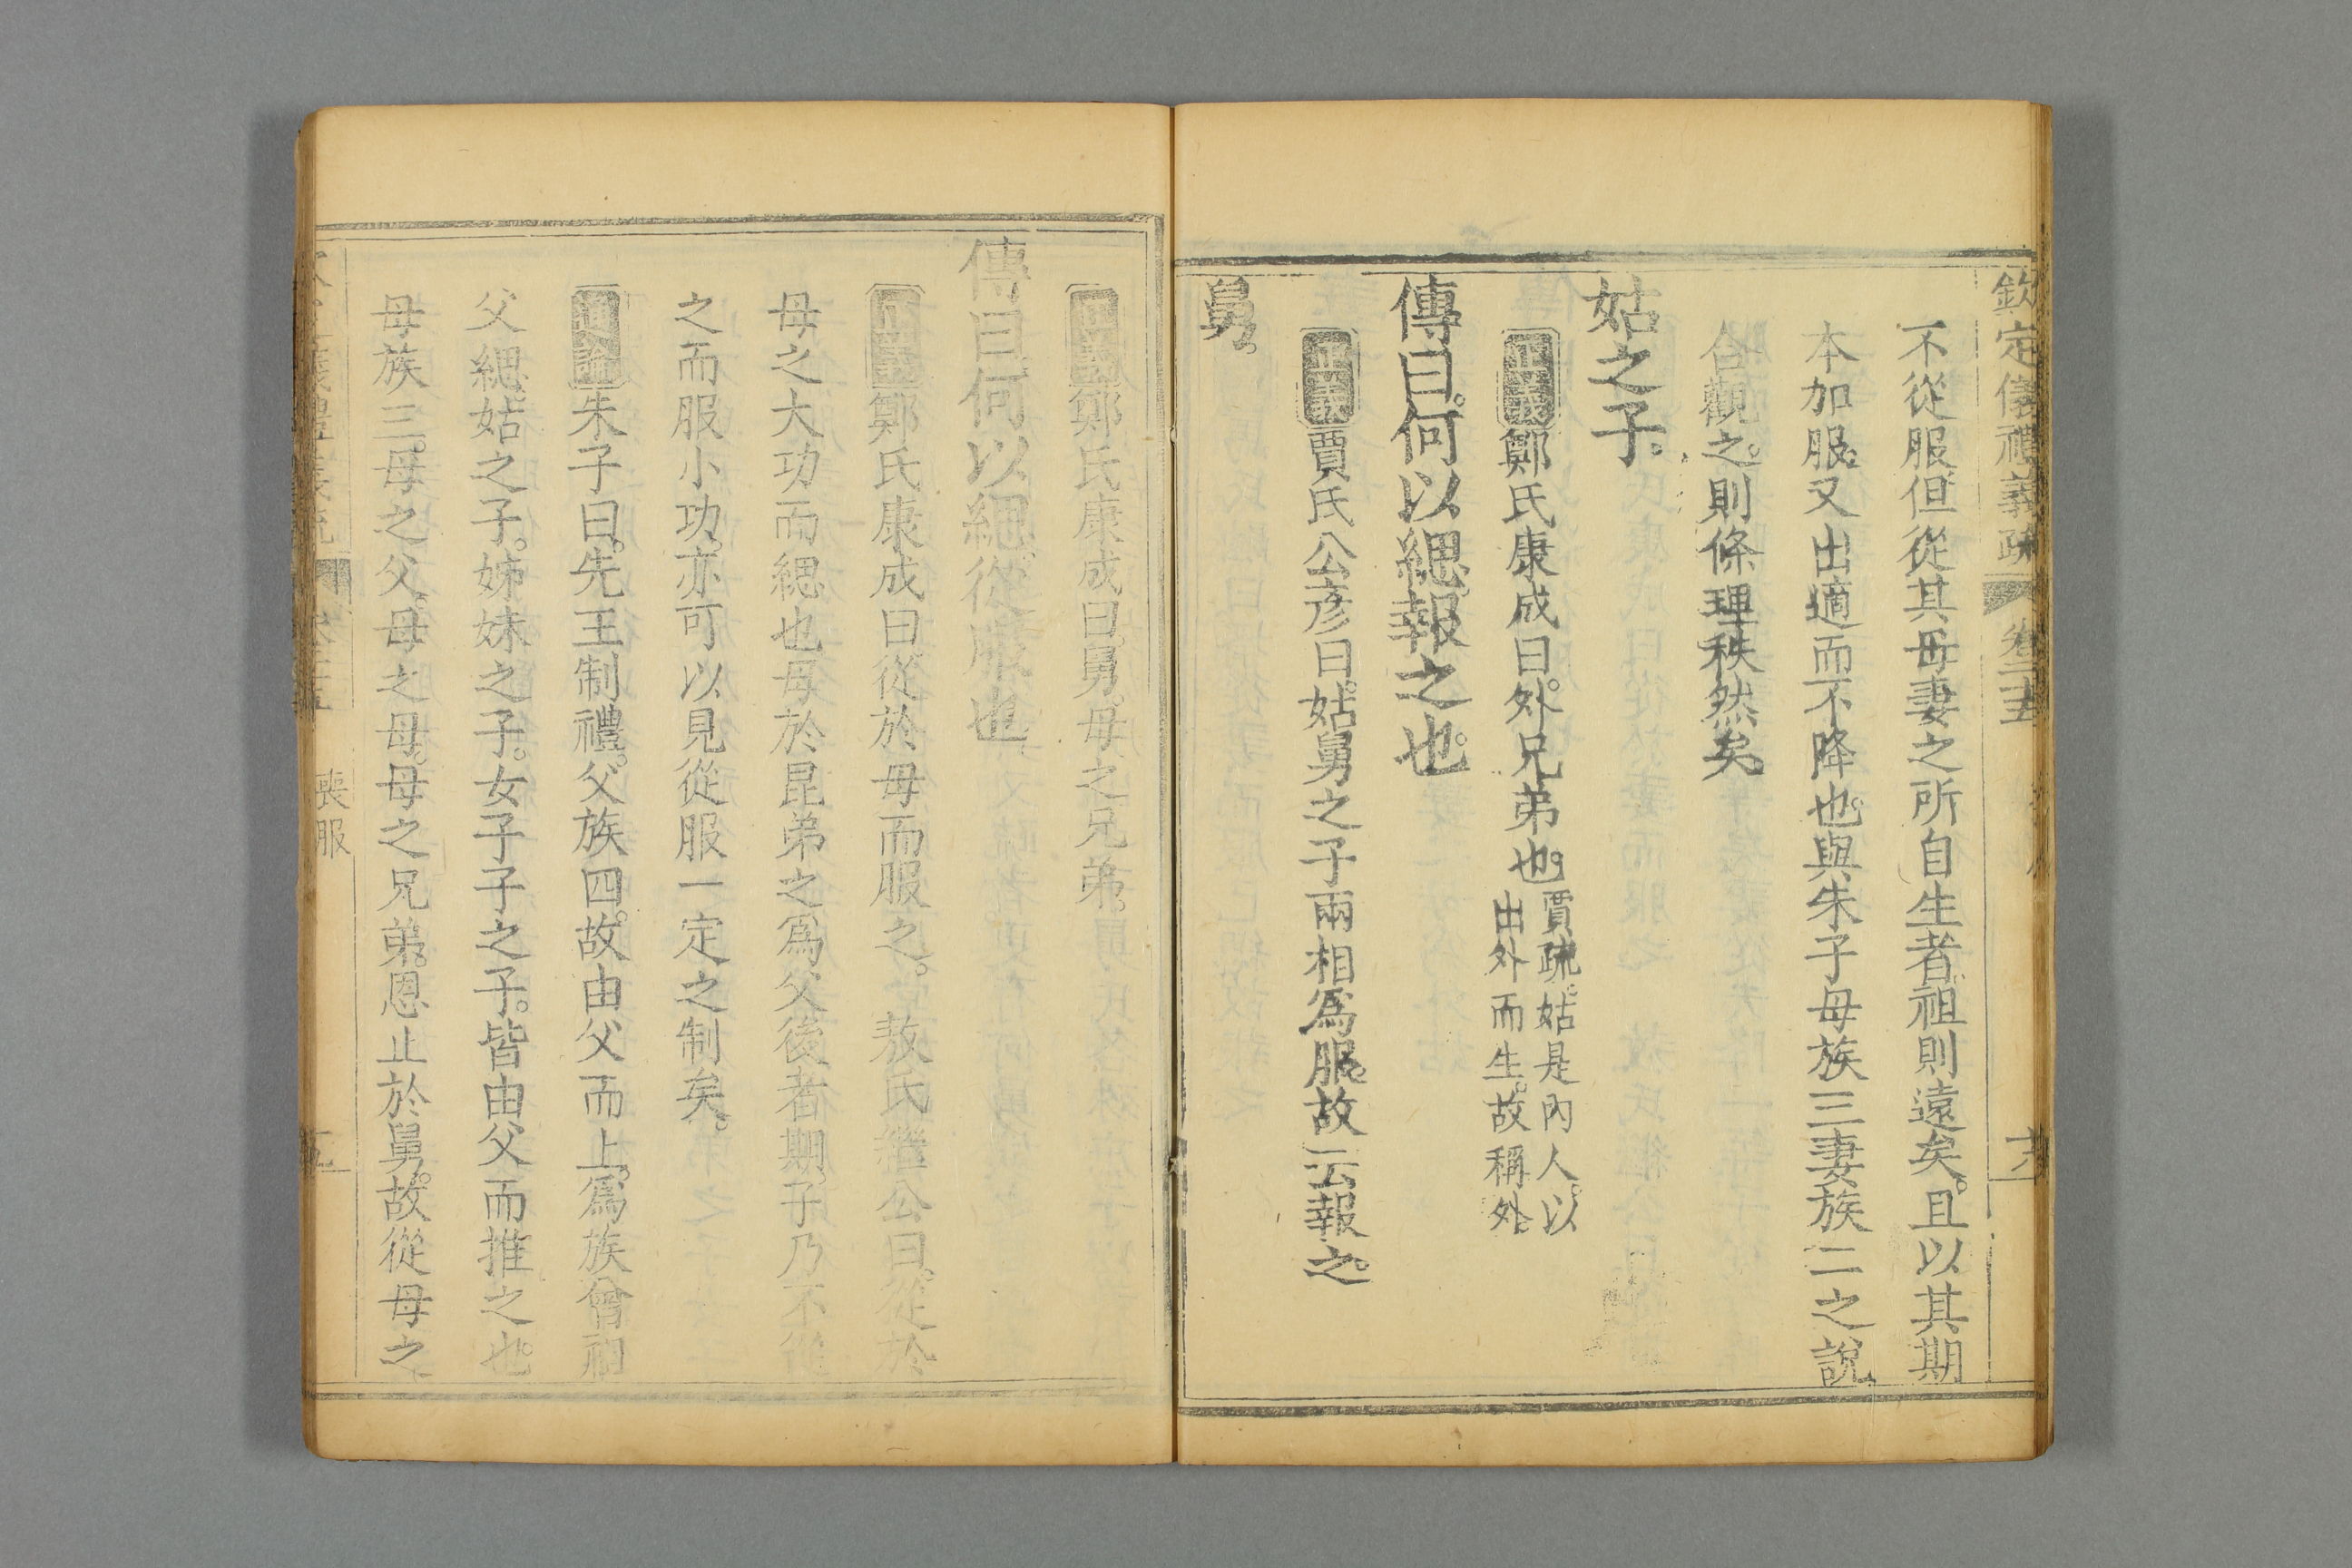 欽定儀禮義疏 卷二十五
不從服但從其母妻之所自生者祖則遠矣。且以其期
本加服。又出適而不降也。與朱子母族三妻族二之說
合觀之。則條理秩然矣
姑之子。
正義鄭氏康成曰。外兄弟也。
賈疏。姑是內人。以
出外而生。故稱外。
傳曰。何以緦。報之也。
正義賈氏公彥曰。姑舅之子兩相爲服。故云報之。
舅。
正義鄭氏康成曰。舅。母之兄弟。
傳曰。何以緦。從服也。
正義鄭氏康成曰。從於母而服之。 敖氏繼公曰。從於
母之大功而緦也母於昆弟之爲父後者期。子乃不從
之而服小功。亦可以見從服一定之制矣。
通論朱子曰。先王制禮。父族四。故由父而上。爲族曾祖
父緦。姑之子。姊妹之子。女子子之子。皆由父而推之也。
母族三。母之父。母之母。母之兄弟。恩止於舅。故從母之
喪服